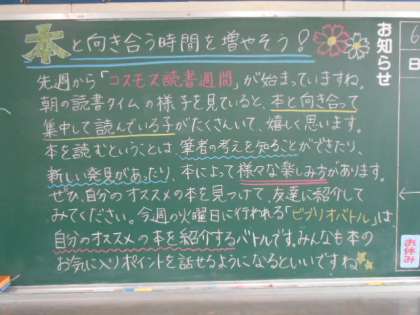 本と向き合う時間を増やそう!
先週から「コスモス読書週間」が始まっていますね。
朝の読書タイムの様子を見ていると、本と向き合って
集中して読んでいる子がたくさんいて、嬉しく思います。
本を読むということは筆者の考えを知ることができたり、
新しい発見があったり、本によって様々な楽しみ方があります。
ぜひ、自分のオススメの本を見つけて、友達に紹介して
みてください。今週の火曜日に行われる「ビブリオバトル」は
自分のオススメの本を紹介するバトルです。みんなも本の
お気に入りポイントを話せるようになるといいですね
お知らせ
6
日
お休み